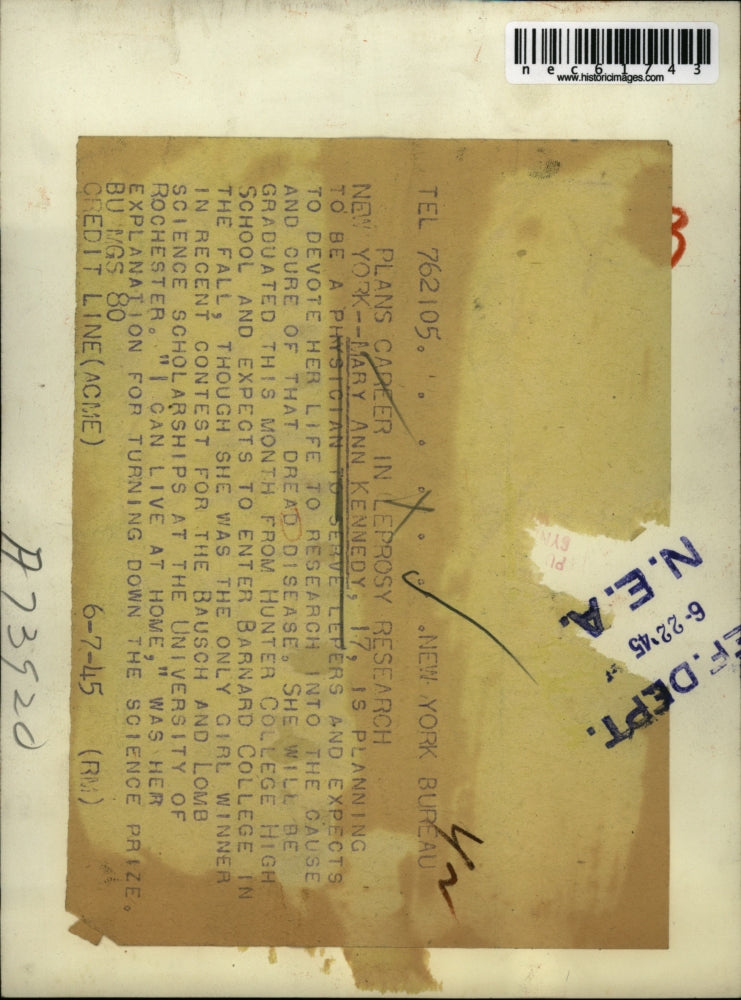 nec61743
www.historicimages.com
TEL 762105. . . . . . .NEW YORK BUREAU
PLANS CAREER IN LEPROSY RESEARCH
NEW YORK--MARY ANN KENNEDY, 17, IS PLANNING
TO BE A PHYSICIAN TO SERVE LEPERS AND EXPECTS
TO DEVOTE HER LIFE TO RESEARCH INTO THE CAUSE
AND CURE OF THAT DREAD DISEASE. SHE WILL BE
GRADUATED THIS MONTH FROM HUNTER COLLEGE HIGH
SCHOOL AND EXPECTS TO ENTER BARNARD COLLEGE IN
THE FALL, THOUGH SHE WAS THE ONLY GIRL WINNER
IN RECENT CONTEST FOR THE BAUSCH AND LOMB
SCIENCE SCHOLARSHIPS AT THE UNIVERSITY OF
ROCHESTER. "I CAN LIVE AT HOME," WAS HER
EXPLANATION FOR TURNING DOWN THE SCIENCE PRIZE.
BU MGS 80
CREDIT LINE (ACME) 6-7-45 (RM)
1/2
N.E.A.
6-22-45
EF. DEPT.
A73520